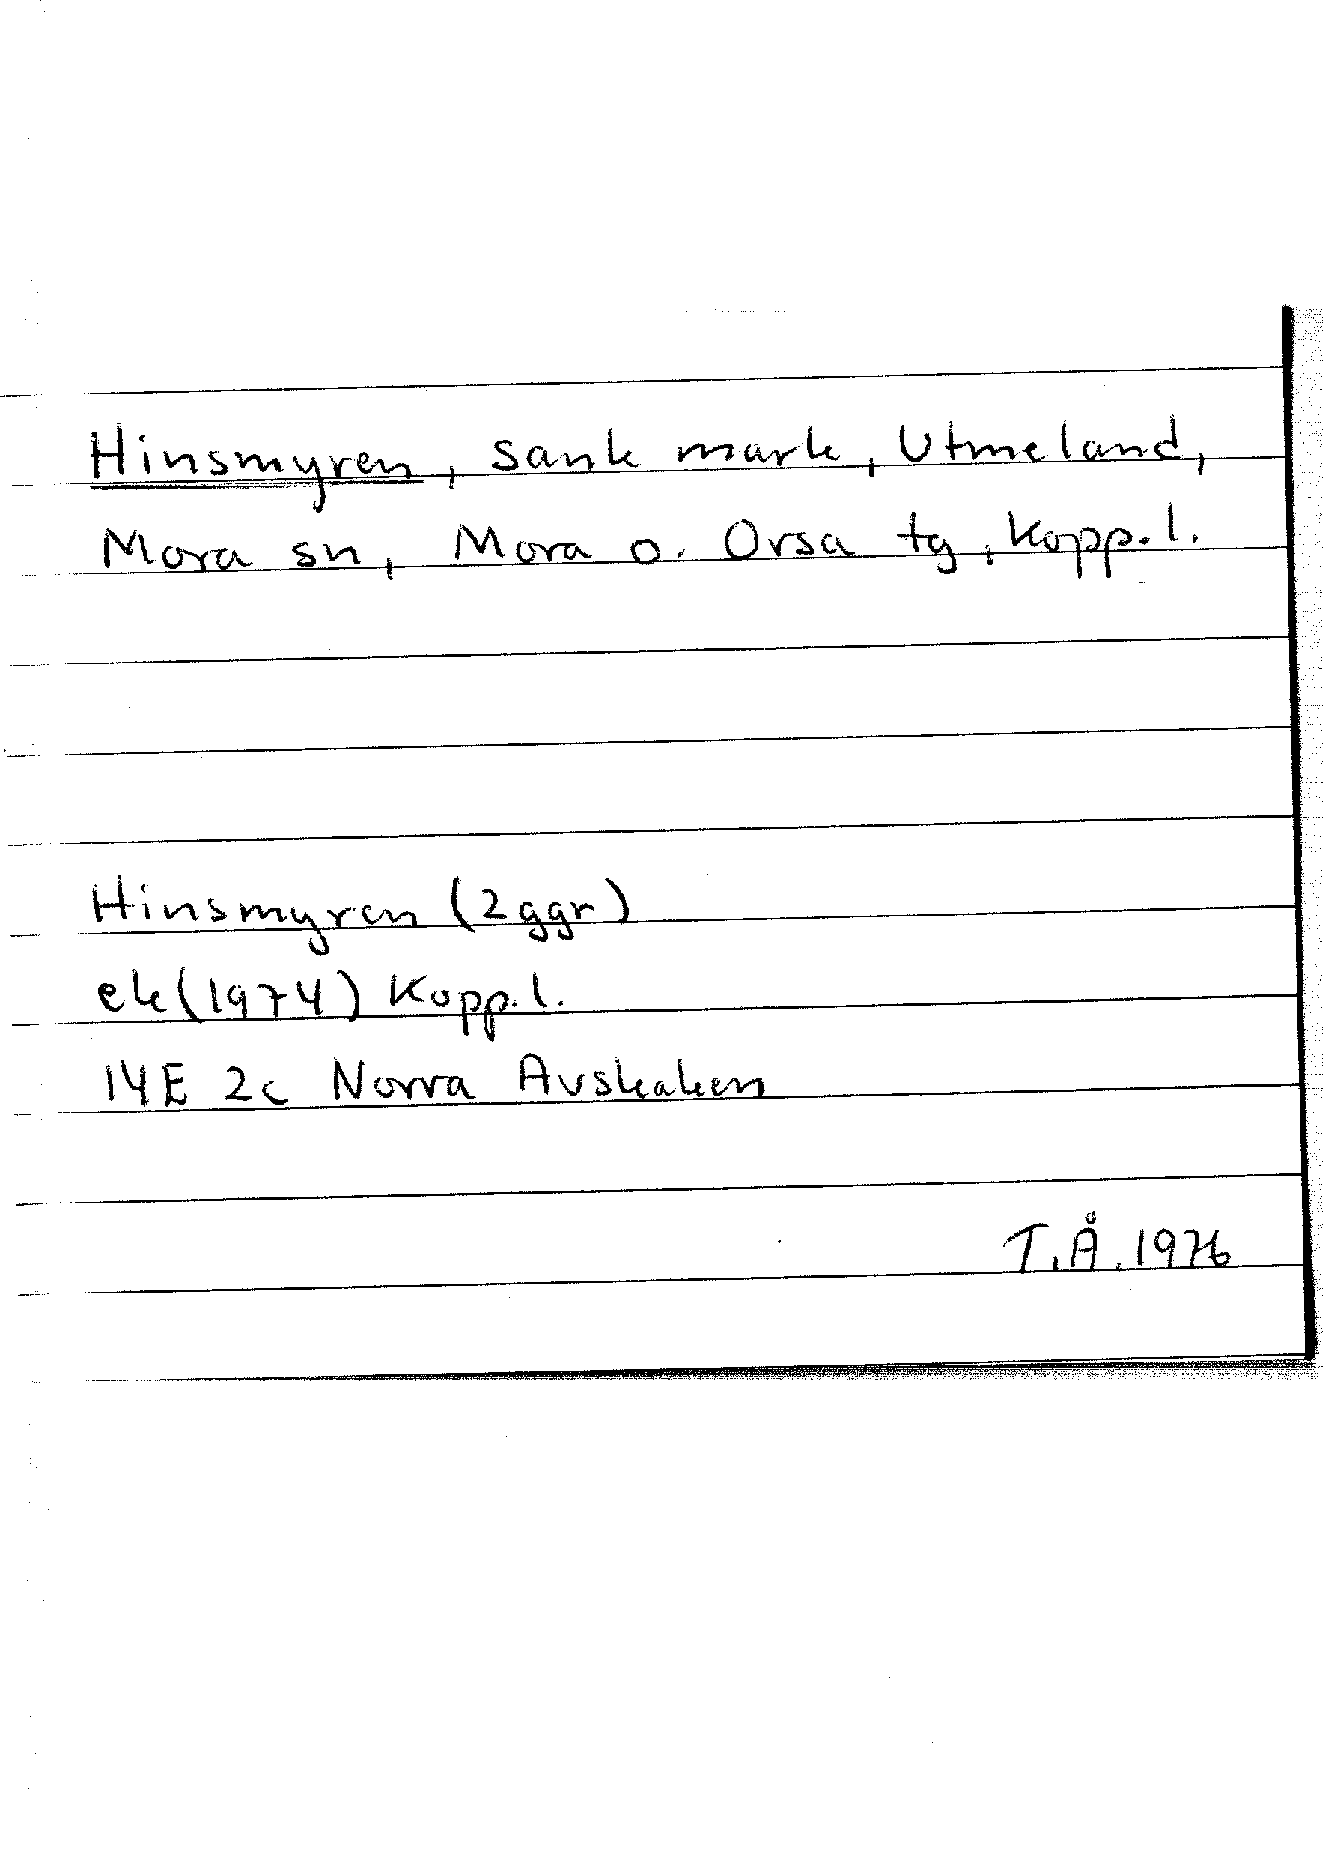 Hinsmyren, sank mark, Utmeland,
Mora sn, Mora o. Orsa tg, Kopp.l.
Hinsmyren (2ggr)
ek(1974) Kopp.l.
14E 2c Norra Avskaken
T.Å.1976